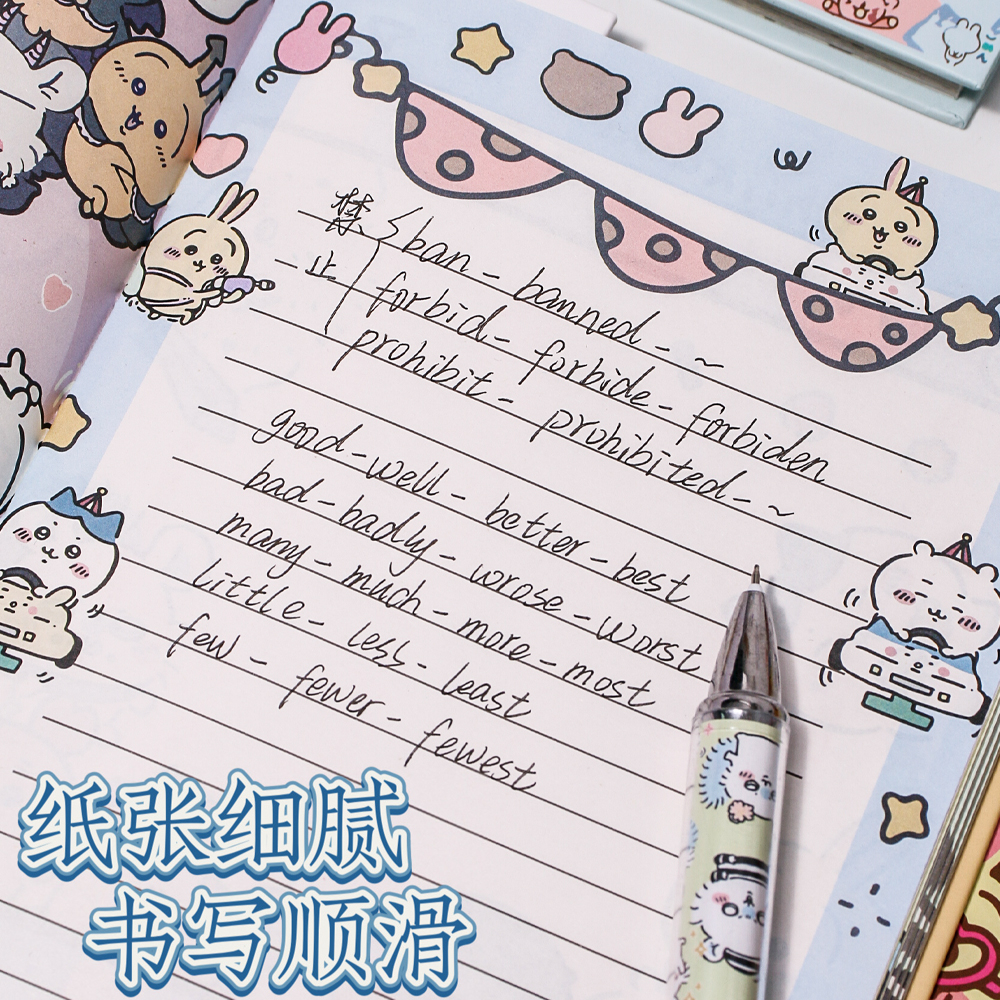 禁 ban - banned - ~
止 forbid - forbide - forbiden
prohibit - prohibited - ~
good - well - better - best
bad - badly - wrose - worst
many - much - more - most
little - less - least
few - fewer - fewest
纸张细腻
书写顺滑